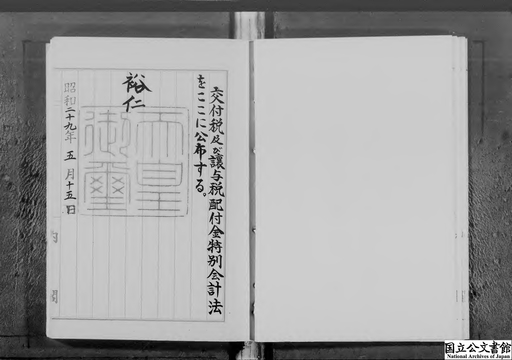 交付税及び譲与税配付金特別会計法
をここに公布する。
裕仁
天皇
御璽
昭和二十九年五月十五日
内閣
国立公文書館
National Archives of Japan